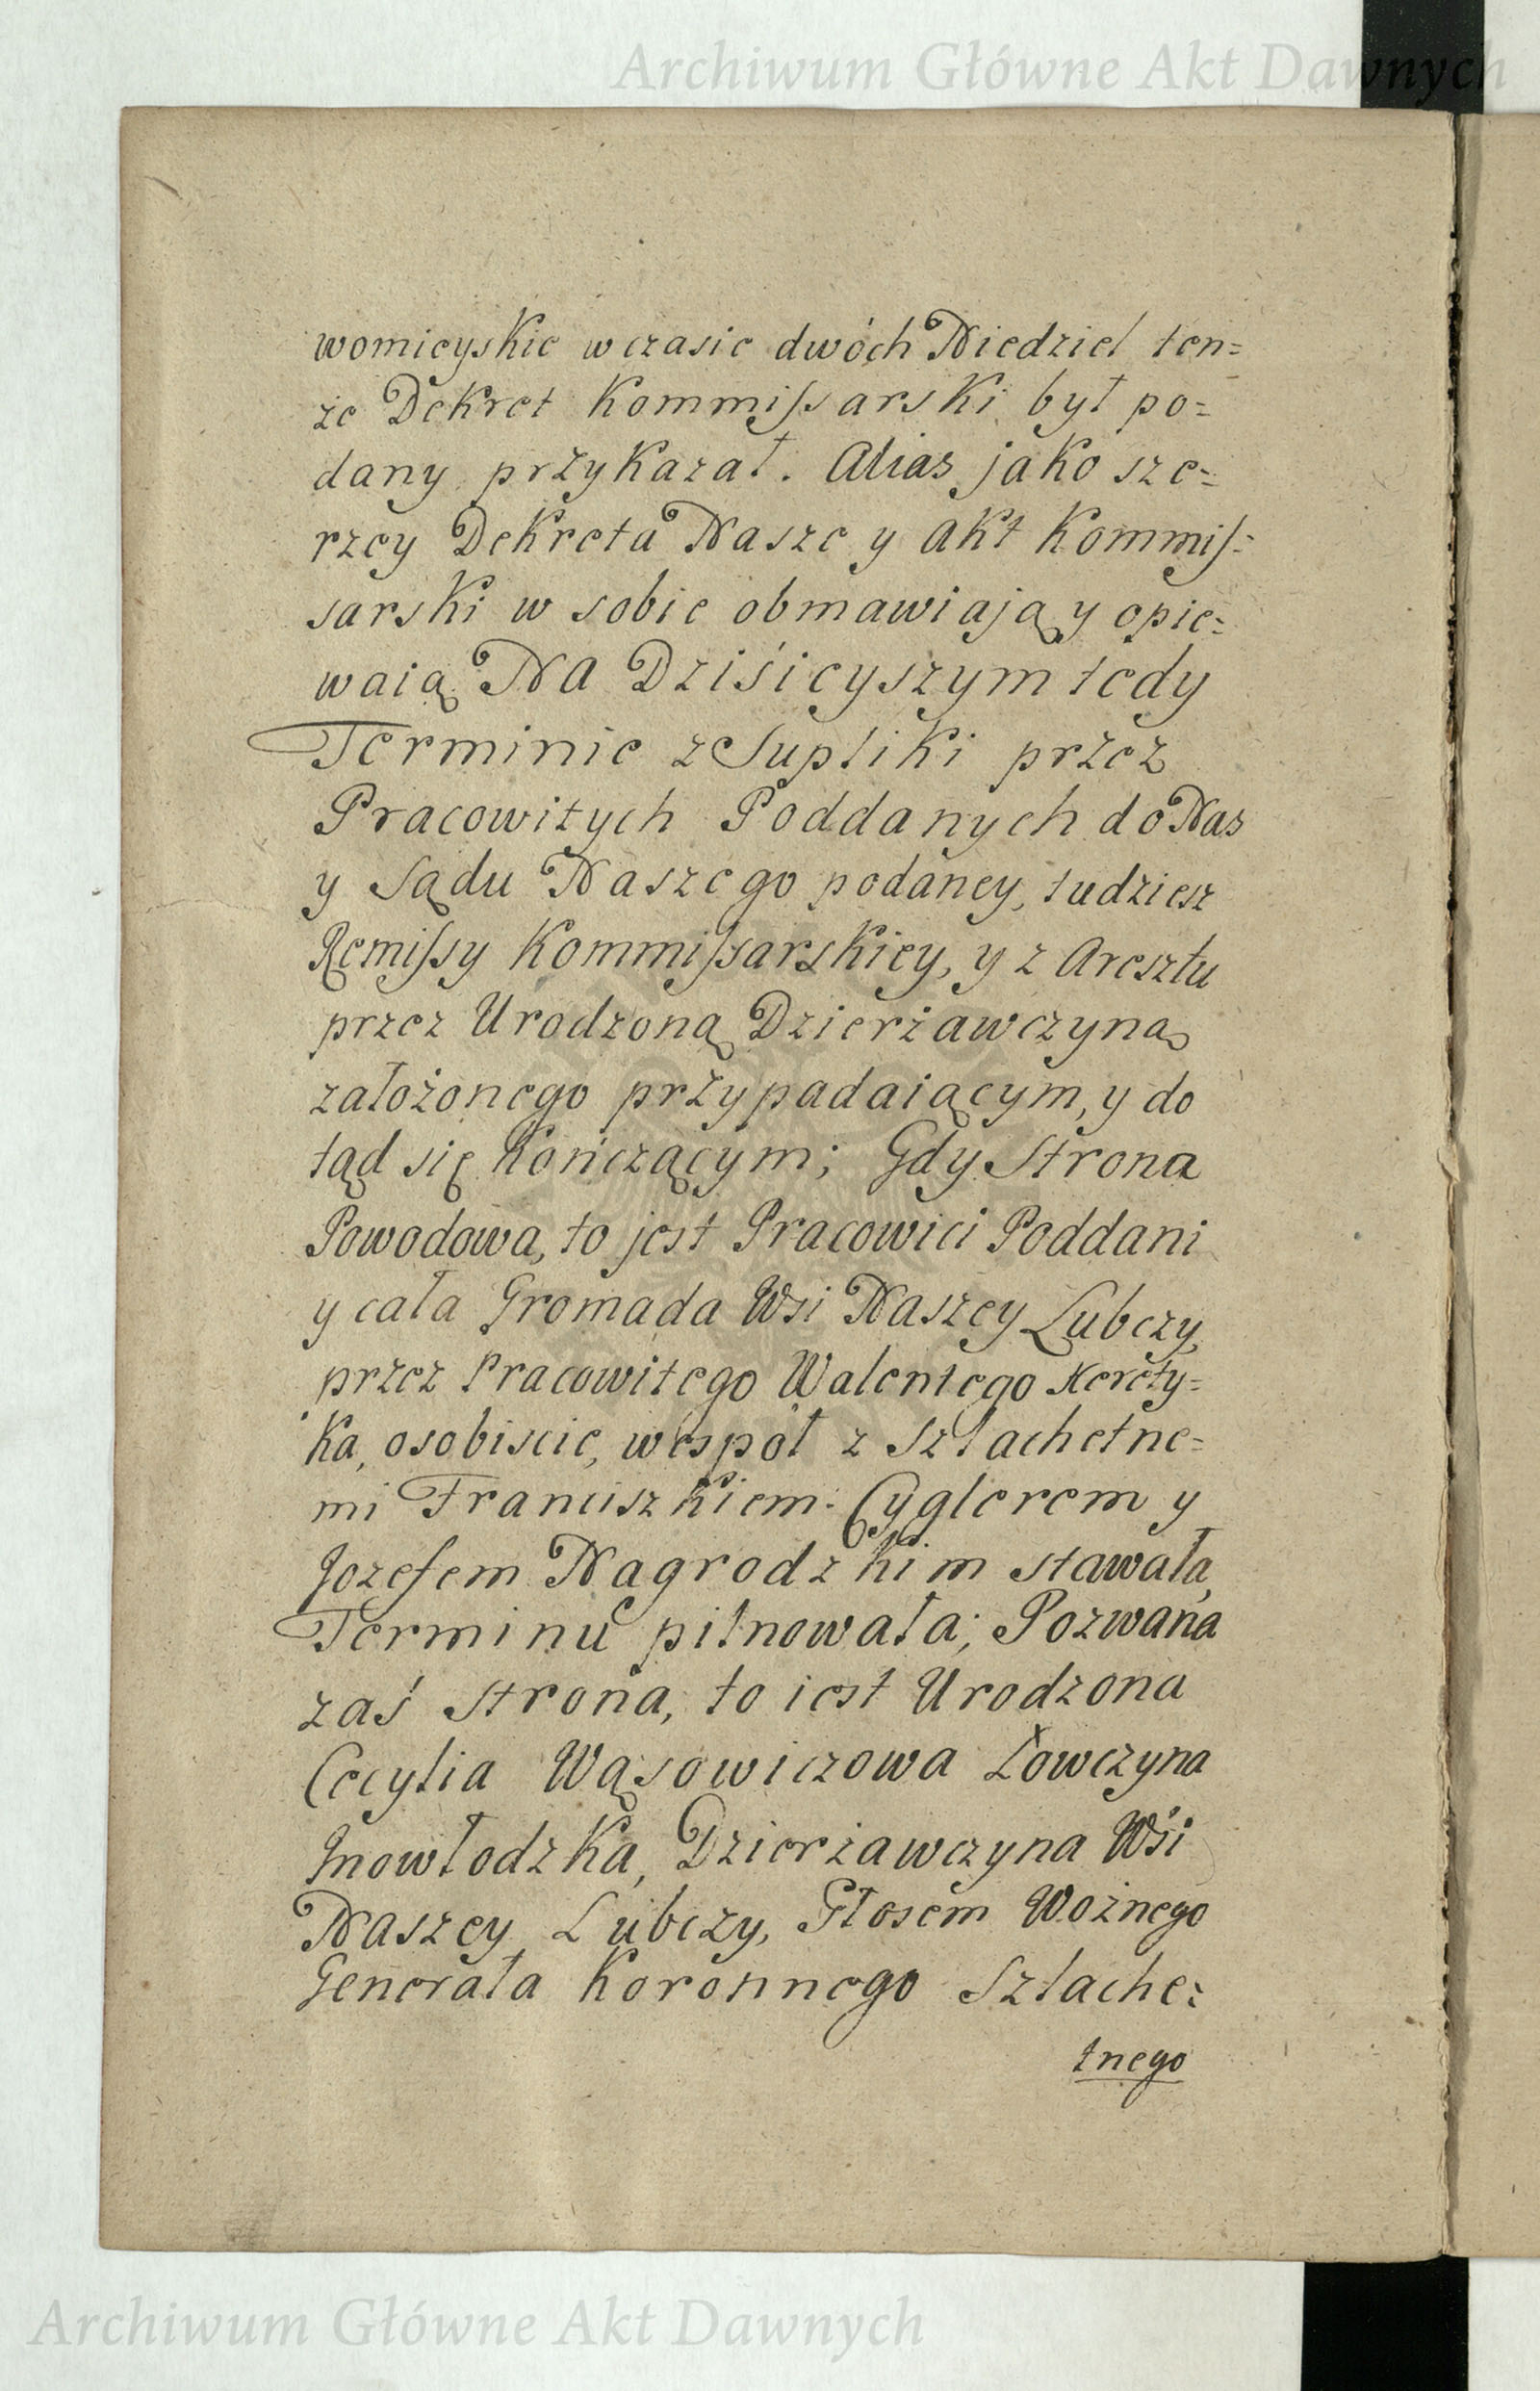 Archiwum Główne Akt Dawnych
womieyskie w czasie dwóch Niedziel ten=
że Dekret Kommissarski był po=
dany przykazał. Alias jako sze=
rzey Dekreta Nasze y Akt Kommis=
sarski w sobie obmawiaią y opie=
waią. Na Dziśieyszym tedy
Terminie z Supliki przez
Pracowitych Poddanych do Nas
y Sądu Naszego podaney, tudziesz
Remissy Kommissarskiey, y z Aresztu
przez Urodzoną Dzierżawczyną
założonego przypadaiącym, y do
tąd się kończącym; Gdy Strona
Powodowa, to jest Pracowici Poddani
y cała Gromada Wsi Naszey Lubczy,
przez Pracowitego Walentego Kerety=
ka, osobiscie, wespół z Szlachetne=
mi Franciszkiem Cyglerem y
Jozefem Nagrodzkim stawała,
Terminu pilnowała; Pozwana
zaś Strona, to iest Urodzona
Cecylia Wąsowiczowa Łowczyna
Inowłodzka, Dzierżawczyna Wśi
Naszey Lubczy, Głosem Woźnego
Generała Koronnego Szlache=
tnego
Archiwum Główne Akt Dawnych